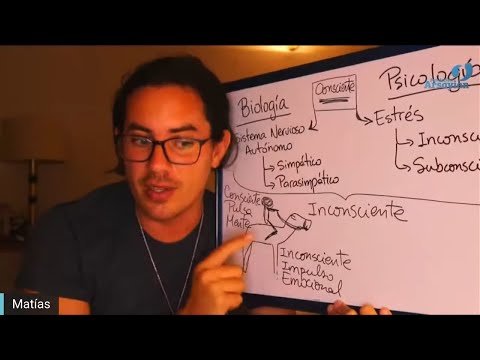 Consciente
Biología
Psicología
Sistema Nervioso
Autónomo
Estrés
Simpático
Parasimpático
Inconsc
Subconsc
Consciente
Pulsa
Mente
Inconsciente
Inconsciente
Impulso
Emocional
Matías